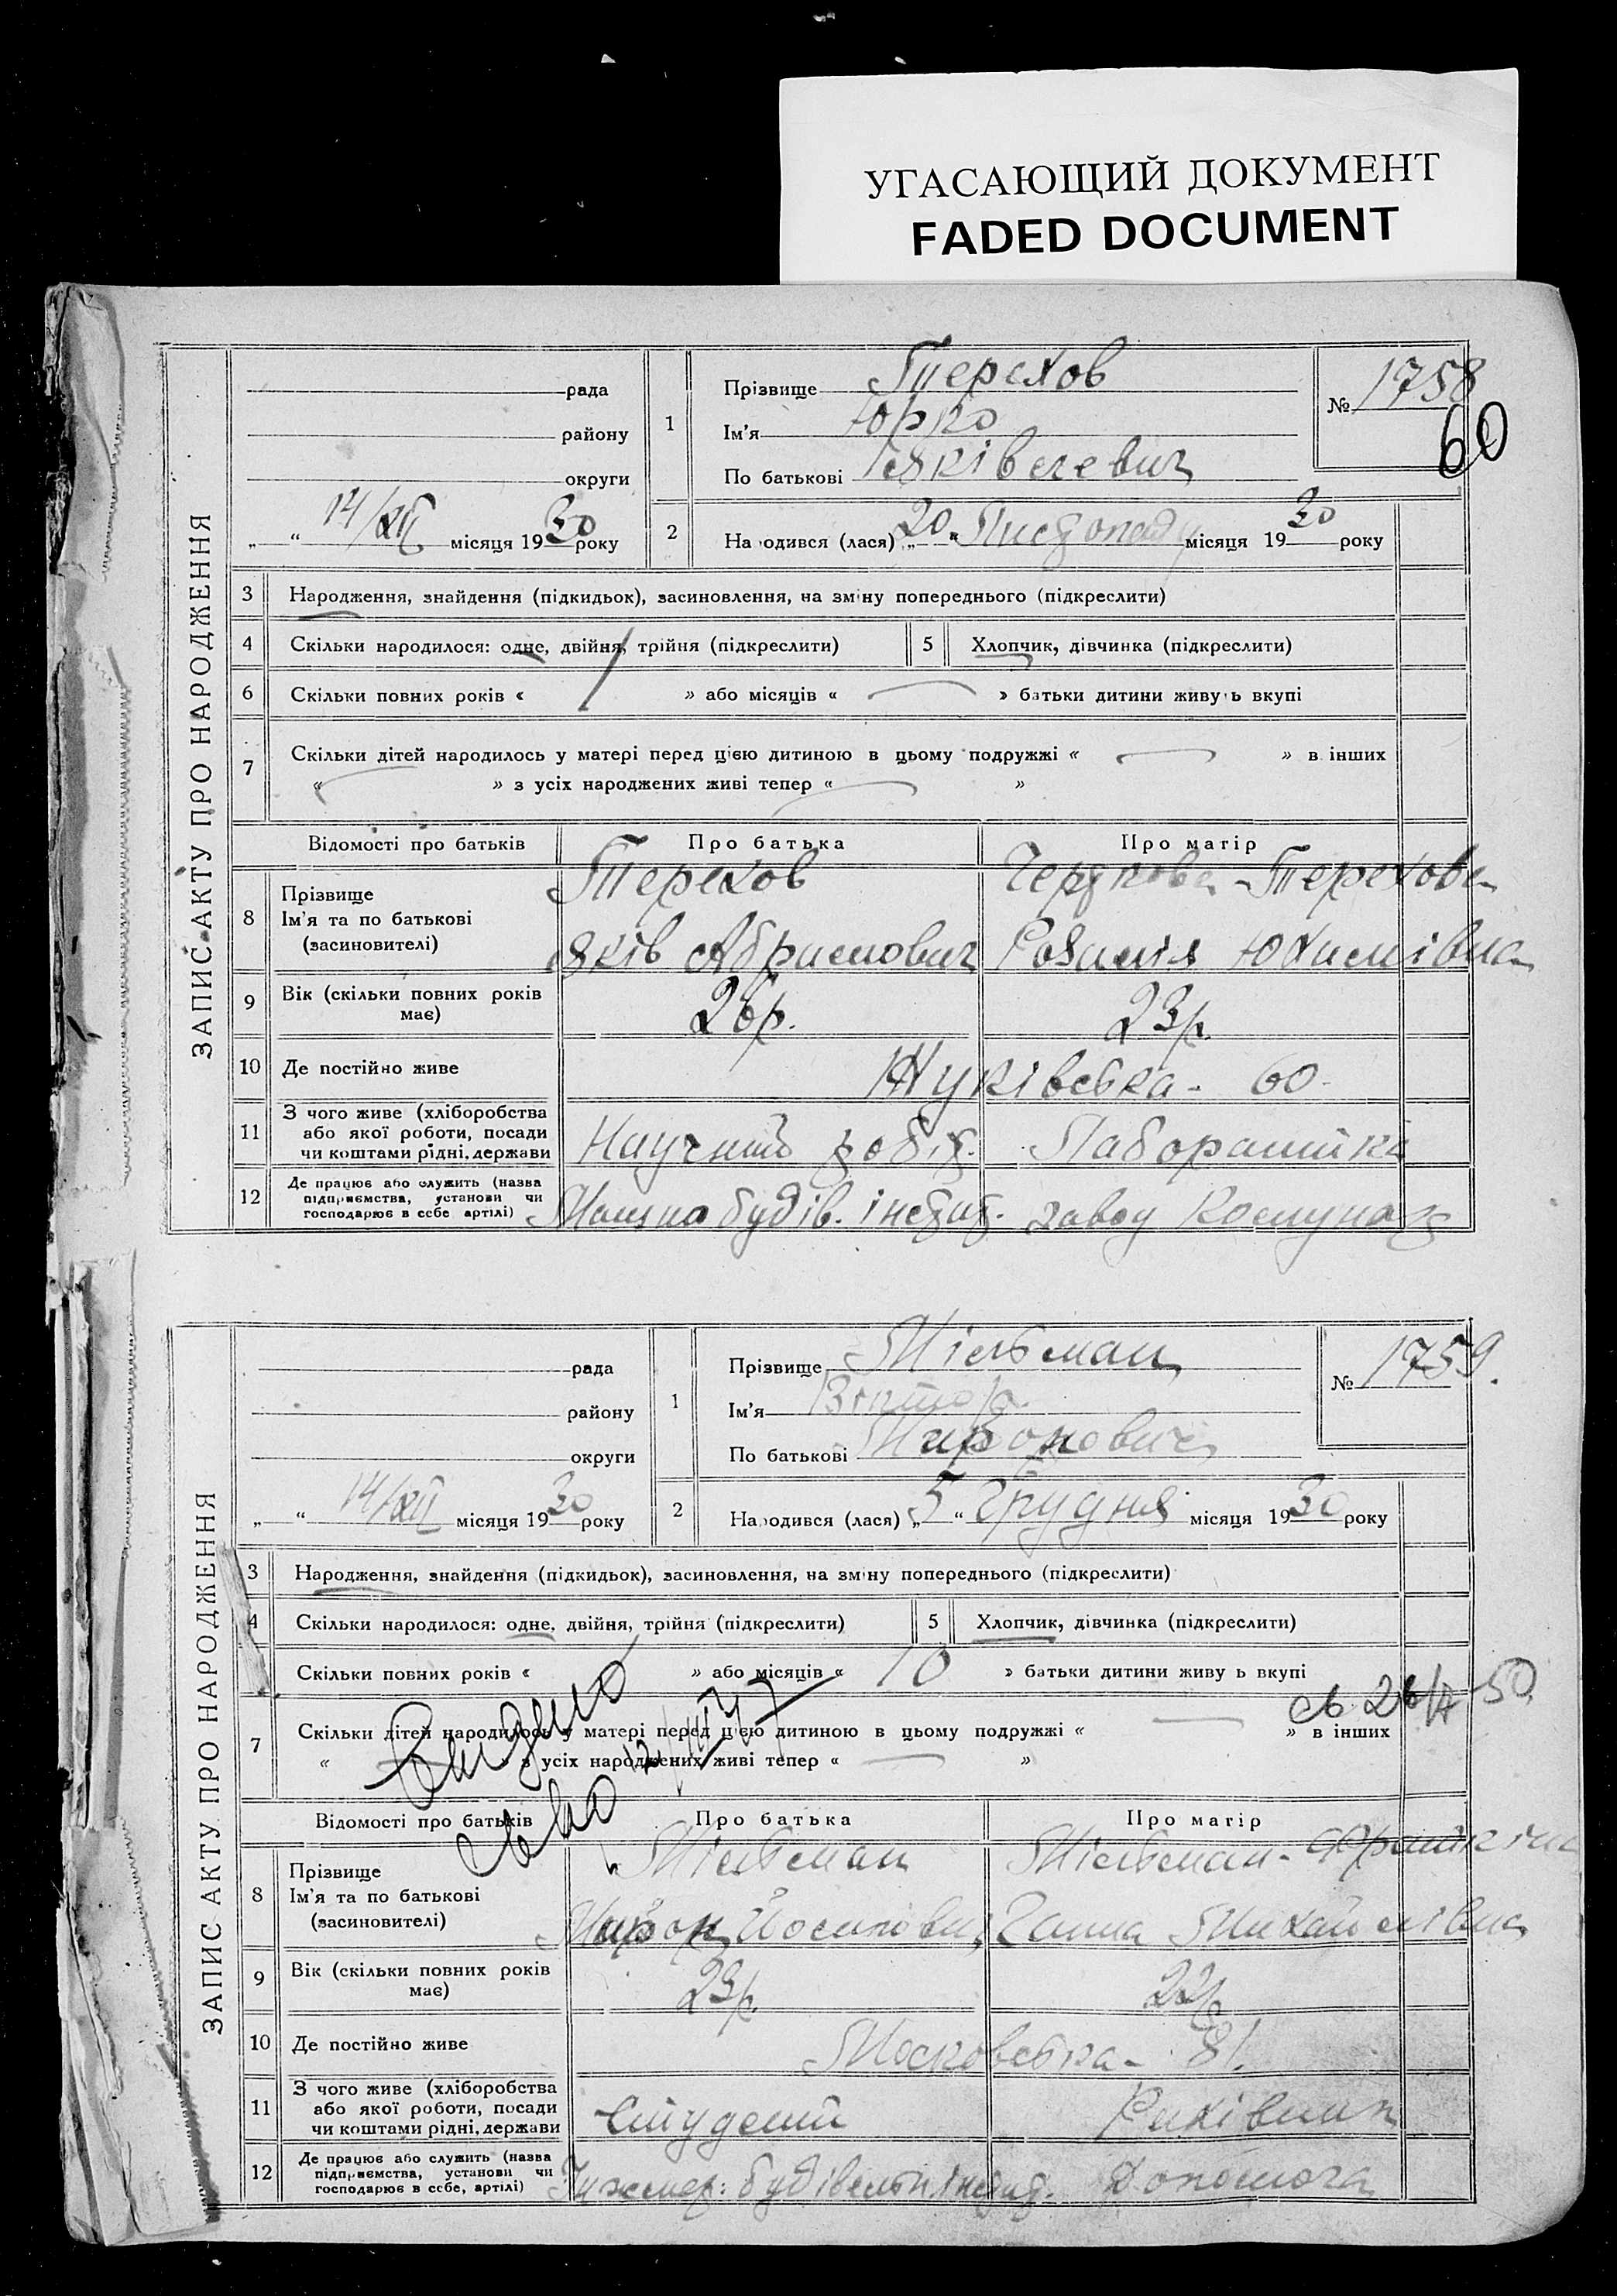 УГАСАЮЩИЙ ДОКУМЕНТ
FADED DOCUMENT
ЗАПИС АКТУ ПРО НАРОДЖЕННЯ
рада
району
округи
„ “ 14/XII місяця 1930 року
1 Прізвище Терехов
Ім'я Юрко
По батькові Яківлевич
№ 1758
60
2 Народився (лася) „20“ Листопада місяця 1930 року
3 Народження, знайдення (підкидьок), засиновлення, на зміну попереднього (підкреслити)
4 Скільки народилося: одне, двійня, трійня (підкреслити) 5 Хлопчик, дівчинка (підкреслити)
6 Скільки повних років « 1 » або місяців « — » батьки дитини живуть вкупі
7 Скільки дітей народилось у матері перед цією дитиною в цьому подружжі « — » в інших
« — » з усіх народжених живі тепер « — »
Відомості про батьків Про батька Про матір
8 Прізвище Терехов Терехова
Ім'я та по батькові
(засновителі) Яків Абрамович Розалія Юхимівна
9 Вік (скільки повних років має) 26р. 23р.
10 Де постійно живе Жуківська - 60-
11 З чого живе (хліборобства
або якої роботи, посади
чи коштами рідні, держави Научний робіт. Лаборантка
12 Де працює або служить (назва
підприємства, установи чи
господарює в себе артілі) Машинобудів. інстит. завод Комунар
ЗАПИС АКТУ ПРО НАРОДЖЕННЯ
рада
району
округи
„ “ 14/XII місяця 1930 року
1 Прізвище Мільман
Ім'я Віктор
По батькові Миронович
№ 1759.
2 Народився (лася) „5“ Грудня місяця 1930 року
3 Народження, знайдення (підкидьок), засиновлення, на зміну попереднього (підкреслити)
4 Скільки народилося: одне, двійня, трійня (підкреслити) 5 Хлопчик, дівчинка (підкреслити)
Скільки повних років « » або місяців « 10 » батьки дитини живуть вкупі
7 Скільки дітей народилось у матері перед цією дитиною в цьому подружжі « — » в інших
« — » з усіх народжених живі тепер « — »
Відомості про батьків Про батька Про матір
8 Прізвище Мільман Мільман-
Ім'я та по батькові
(засиновителі) Мирон Йосипович Ганна Михайлівна
9 Вік (скільки повних років має) 23р. 22р.
10 Де постійно живе Московська - 81.
11 З чого живе (хліборобства
або якої роботи, посади
чи коштами рідні, держави Студент Рахівник
12 Де працює або служить (назва
підприємства, установи чи
господарює в себе, артілі) Інженер: будівельн. Інстит. Допомога